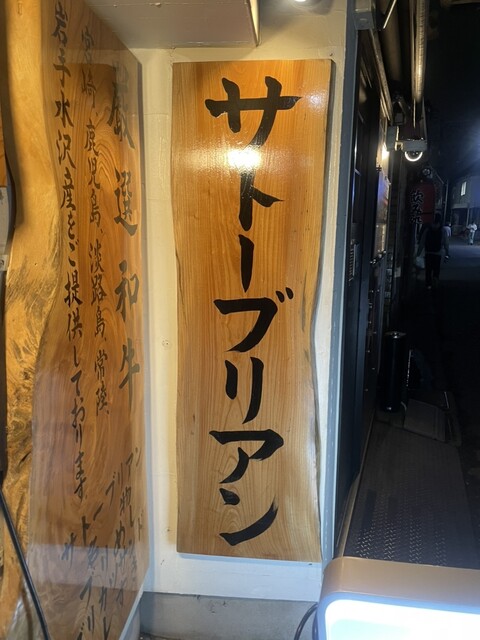 サトーブリアン
厳選和牛
宮崎、鹿児島、淡路島、常陸、
岩手水沢産をご提供しております